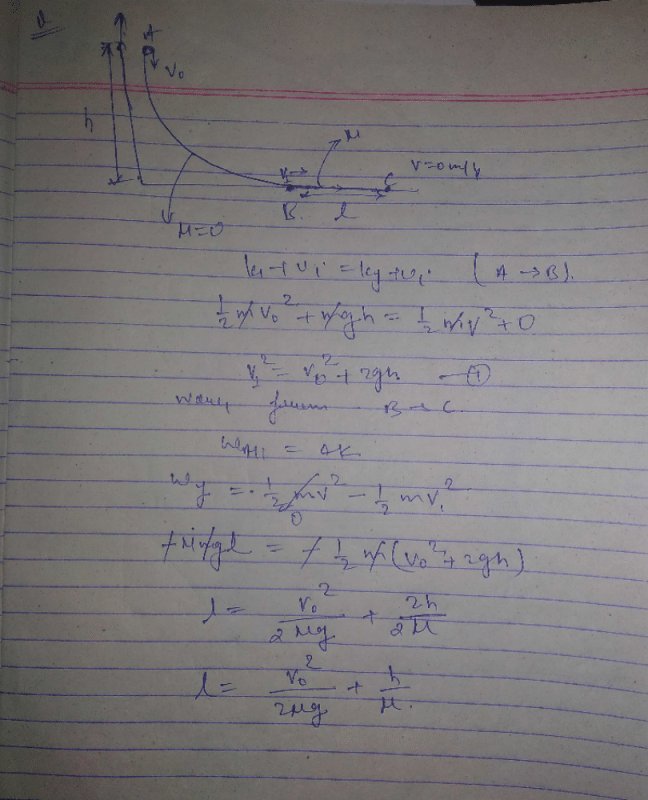 A
V₀
h
μ
V=0 m/s
V₁→
C
B.
l
μ=0
k₁+U₁ = kf+U₁. (A→B).
½ mv₀² + mgh = ½ mv² + 0
V₁² = V₀² + 2gh —①
from B→C.
WAll = ΔK
Wf = ½ mv² − ½ mv₁²
0
−μmgl = −½ m(V₀² + 2gh)
l = V₀²/2μg + 2h/2μ
l = V₀²/2μg + h/μ.